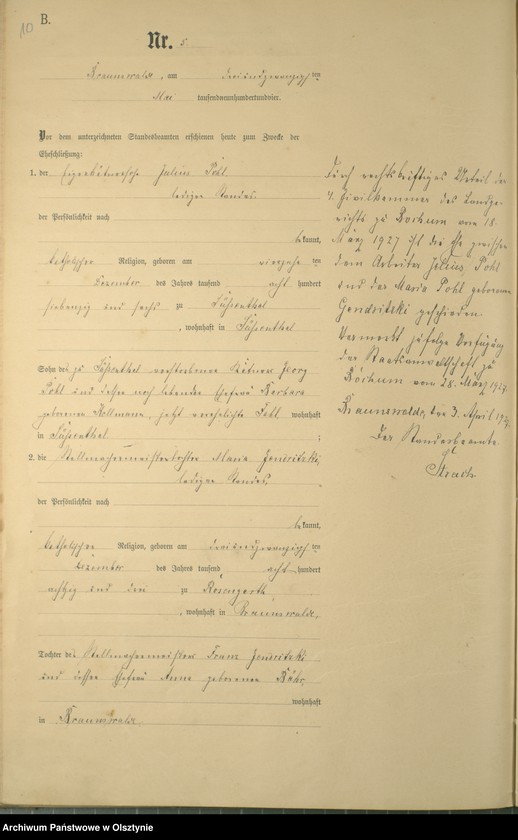 10
B.
Nr. 5
Braunswalde, am dreiundzwanzigsten
Mai tausendneunhundertundvier.
Vor dem unterzeichneten Standesbeamten erschienen heute zum Zwecke der
Eheschließung:
1. der Eigenkätnersohn Julius Pohl
ledigen Standes
der Persönlichkeit nach
bekannt,
katholischer Religion, geboren am vierzehnten
Dezember des Jahres tausend acht hundert
siebenzig und sechs zu
, wohnhaft in
Sohn des zu verstorbenen Kätner Georg
Pohl und dessen noch lebende Ehefrau Barbara
geborenen Kollmann, jetzt verehelichte wohnhaft
in ;
2. die Stellmachermeistertochter Maria
ledigen Standes
der Persönlichkeit nach
bekannt,
katholischer Religion, geboren am dreiundzwanzigsten
Dezember des Jahres tausend acht hundert
achtzig und drei zu Rosengarth
, wohnhaft in Braunswalde
Tochter des Stellmachermeisters Franz
und dessen Ehefrau Anna geborenen
wohnhaft
in Braunswalde
Durch rechtskräftiges Urteil der
4. Zivilkammer des Landge-
richts zu Bochum vom 18.
März 1927 ist die Ehe zwischen
dem Arbeiter Julius Pohl
und der Maria Pohl geborene
Gendritzki geschieden.
Vermerkt zufolge Verfügung
der Staatsanwaltschaft zu
Bochum vom 28. März 1927.
Braunswalde, den 3. April 1927
Der Standesbeamte
Archiwum Państwowe w Olsztynie